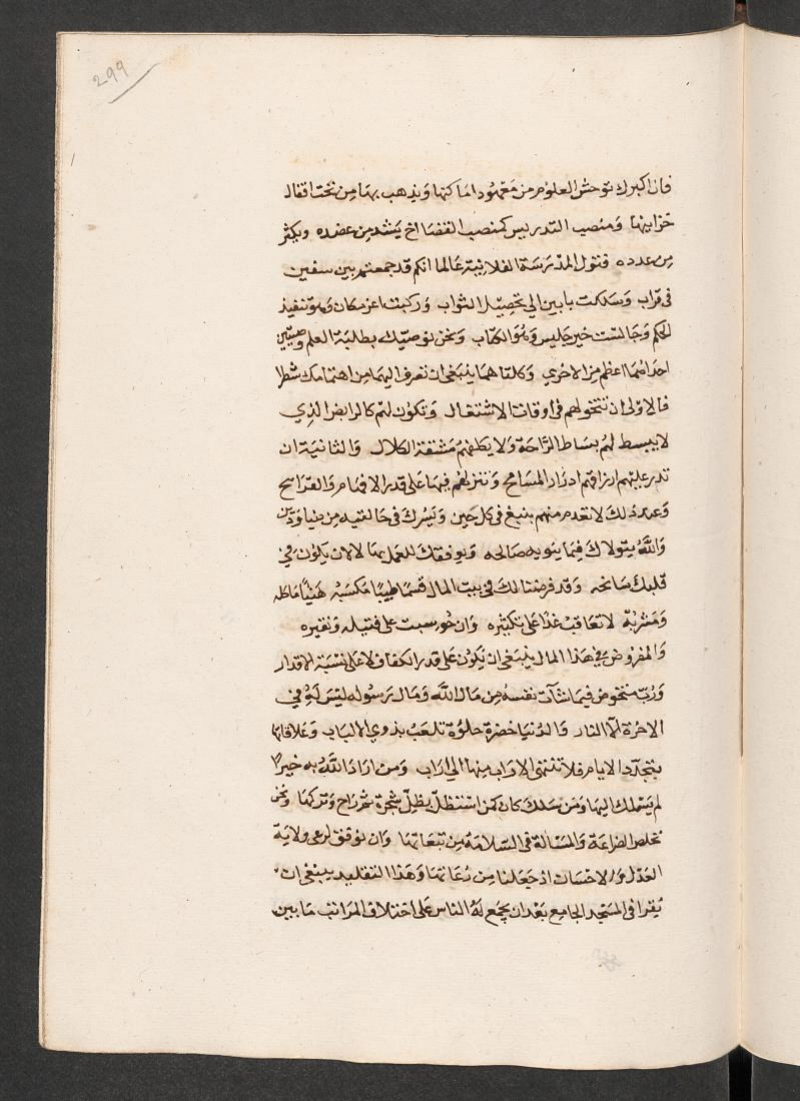 299
فان اكبرك توحش العلوم من معهود اماكنها ويذهب بها من تحت اقفال
خزاينها ومنصب التدريس كمنصب القضا اخ يشد من عضده ويكثر
من عدده فتول المدرسة الفلانية عالما انكم قد جمعتم بين سفين
في قراب وسلكت بابين الي تحصيل الثواب وركبت اعز مكان وهو تنفيذ
الحكم وجالست خير جليس وهو الكتاب ونحن نوصيك بطلبة العلم وصيتين
احداهما اعظم من الاخري وكلتاهما ينبغي ان تعرف اليهما من اهتمامك شطرا
فالاولي ان تتخولهم في اوقات الاشتغال وتكون لهم كالرايض الذي
لا يبسط لهم بساط الراحة ولا يكلفهم مشقة الكلال والثانية ان
تدر عليهم ارزاقهم ادرار المسامح وتنزلهم فيها على قدر الافهام والقرائح
وعند ذلك لا تعدم منهم ينبغ في كل حين ويسرك في حالتيه من دنيا ودين
والله يتولاك فيما ينويه صالحه ويوفقك للعمل بها لا لان يكون في
قلبك سانحه وقد فرضنا لك في بيت المال قسما طيبا مكسبه هنيا ماكله
ومشربه لا تعاقب غدا على تكثيره وان حوسبت على فتيله ونقيره
والمفروض في هذا المال ينبغي ان يكون على قدر الكفاف لا على نسبة الاقدار
ورب متخوض فيما شآت نفسه من مال الله ومال رسوله ليس له في
الاخرة الا النار والدنيا خضرة حلوة تلعب بذوي الالباب وعلاقاتها
بتجدد الايام فلا تنتهي الاراب منها الي اراب ومن اراد الله به خيرا
لم يسلك اليها ومن سلك كان كمن استظل بظل شجرة ثم راح وتركها ونحن
نخلص الضراعة والمسالة في السلامة من تبعاتها وان نوفق لرعي ولاية
العدل والاحسان اذ جعلنا من رعاتها وهذا التقليد ينبغي ان
يقرا في المسجد الجامع بعد ان يجمع له الناس على اختلاف المراتب ما بين